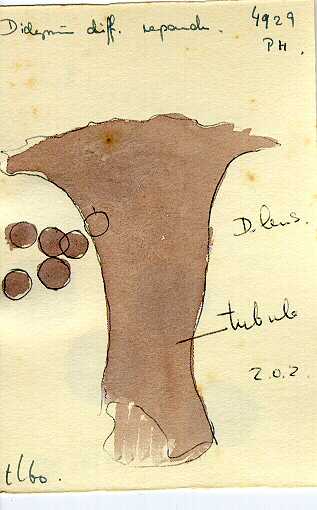 Didymium diff. repand. 4929
PM.
D. lens.
tubule
2.0.2.